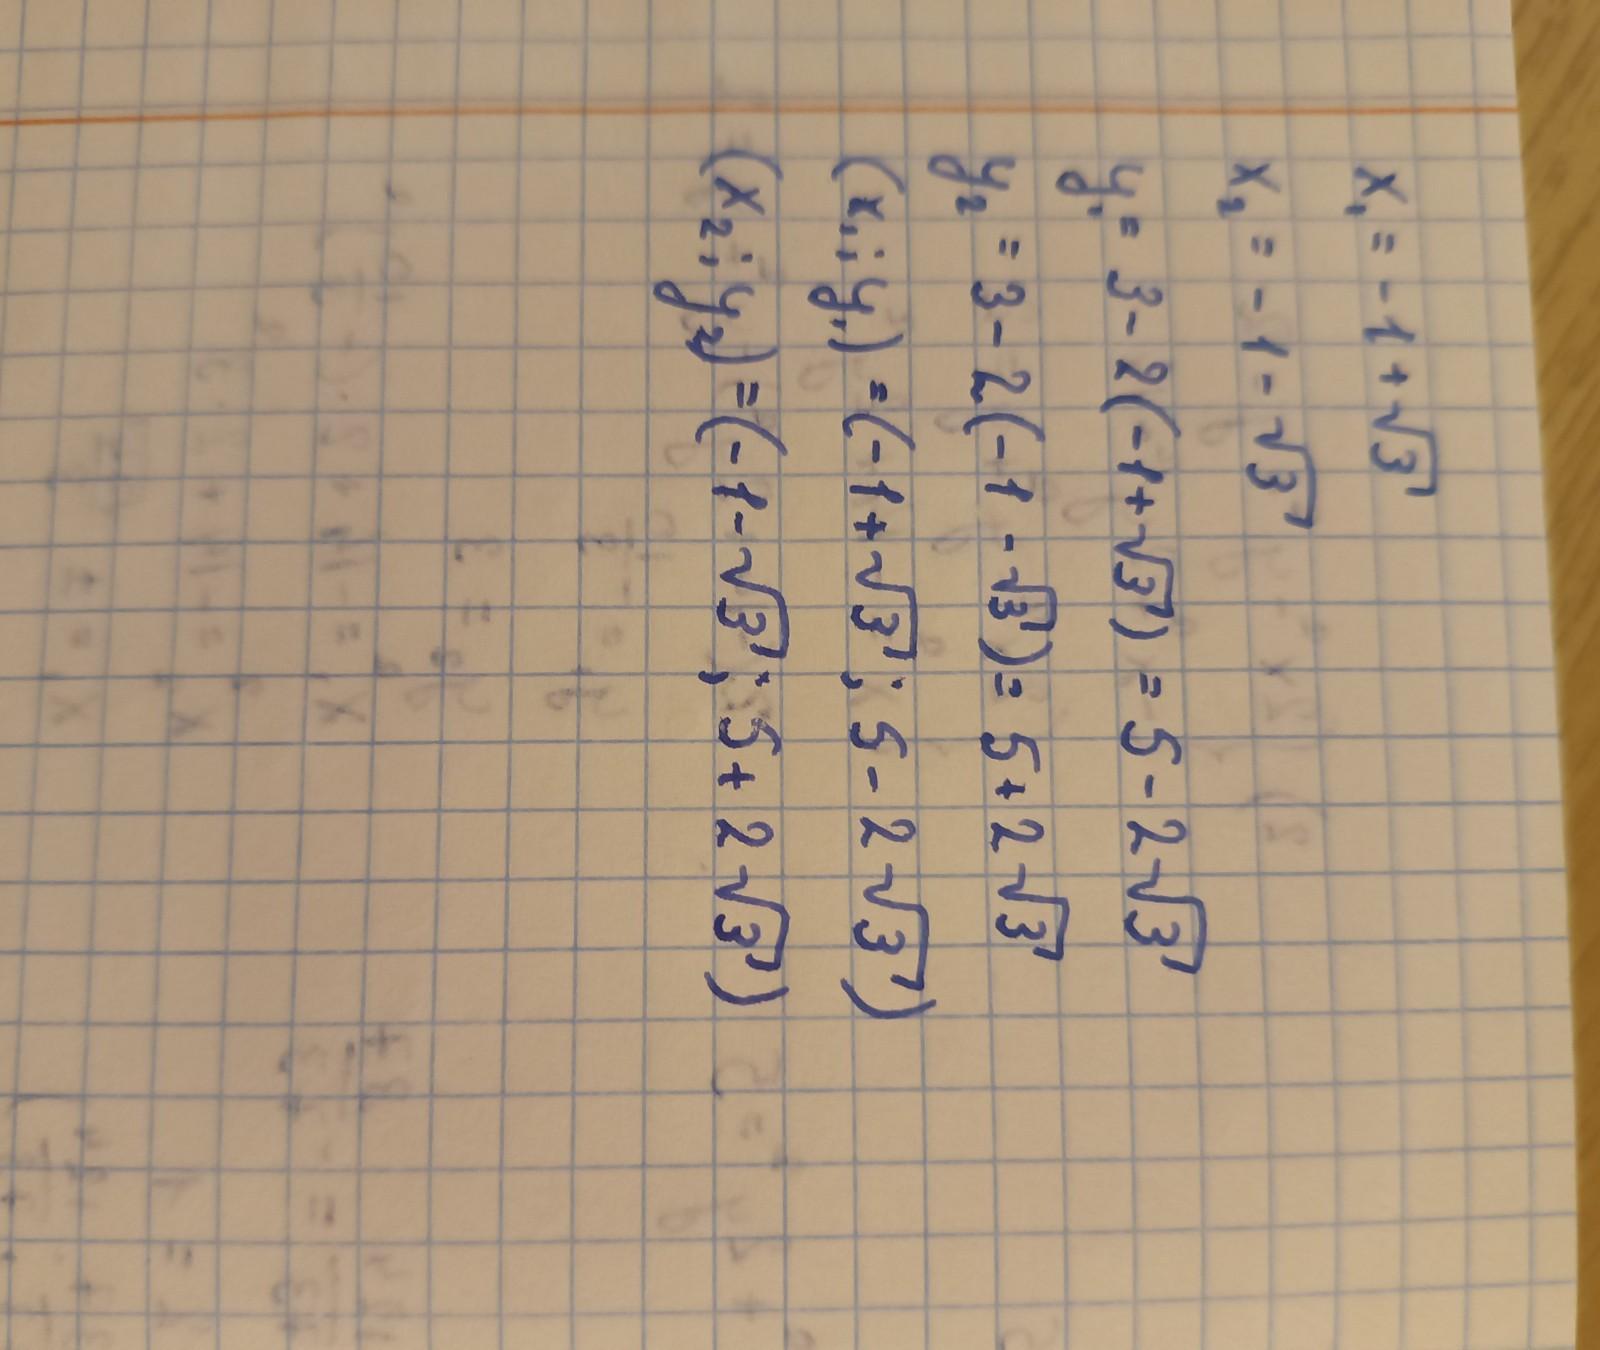 x₁ = -1 + √3
x₂ = -1 - √3
y₁ = 3 - 2(-1 + √3) = 5 - 2√3
y₂ = 3 - 2(-1 - √3) = 5 + 2√3
(x₁; y₁) = (-1 + √3; 5 - 2√3)
(x₂; y₂) = (-1 - √3; 5 + 2√3)